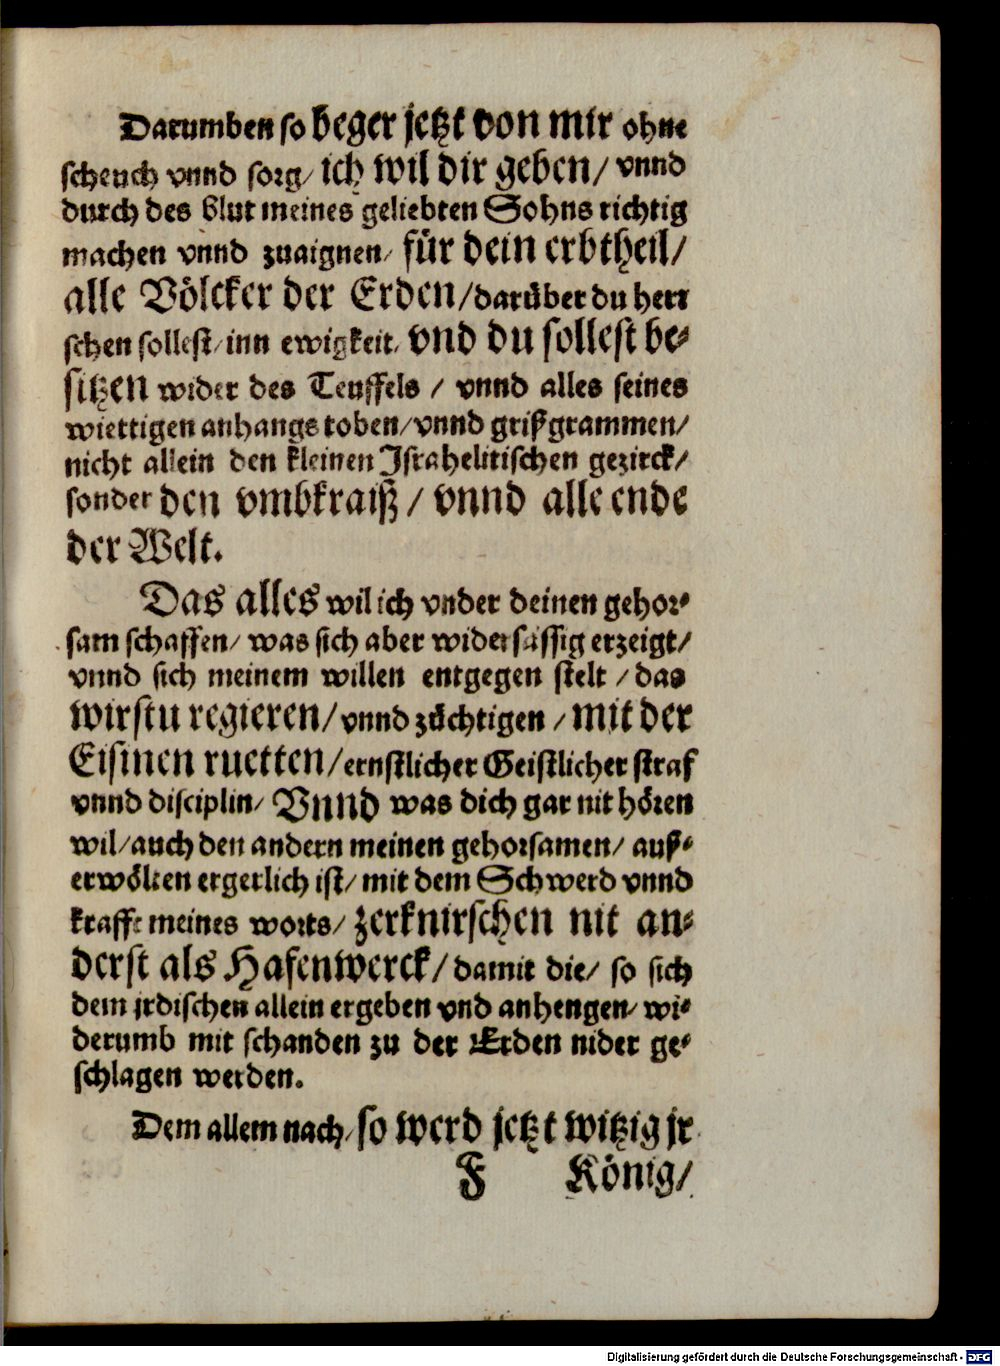 Darumben so beger jetzt von mir ohne
scheuch vnnd sorg/ ich wil dir geben/ vnnd
durch des Blut meines geliebten Sohns richtig
machen vnnd zuaignen/ für dein erbtheil/
alle Völcker der Erden/ darüber du herr
schen sollest/ inn ewigkeit/ vnd du sollest be-
sitzen wider des Teuffels / vnnd alles seines
wiettigen anhangs toben/ vnnd grißgrammen/
nicht allein den kleinen Israhelitischen gezirck/
sonder den vmbkraiß / vnnd alle ende
der Welt.
Das alles wil ich vnder deinen gehor-
sam schaffen/ was sich aber widersässig erzeigt/
vnnd sich meinem willen entgegen stelt / das
wirstu regieren/ vnnd züchtigen / mit der
Eisinen ruetten/ ernstlicher Geistlicher straf
vnnd disciplin/ Vnnd was dich gar nit hören
wil/ auch den andern meinen gehorsamen/ auß-
erwölten ergerlich ist/ mit dem Schwerd vnnd
krafft meines worts/ zerknirschen nit an-
derst als Hafenwerck/ damit die/ so sich
dem jrdischen allein ergeben vnd anhengen/ wi-
derumb mit schanden zu der Erden nider ge-
schlagen werden.
Dem allem nach/ so werd jetzt witzig jr
F König/
Digitalisierung gefördert durch die Deutsche Forschungsgemeinschaft - DFG